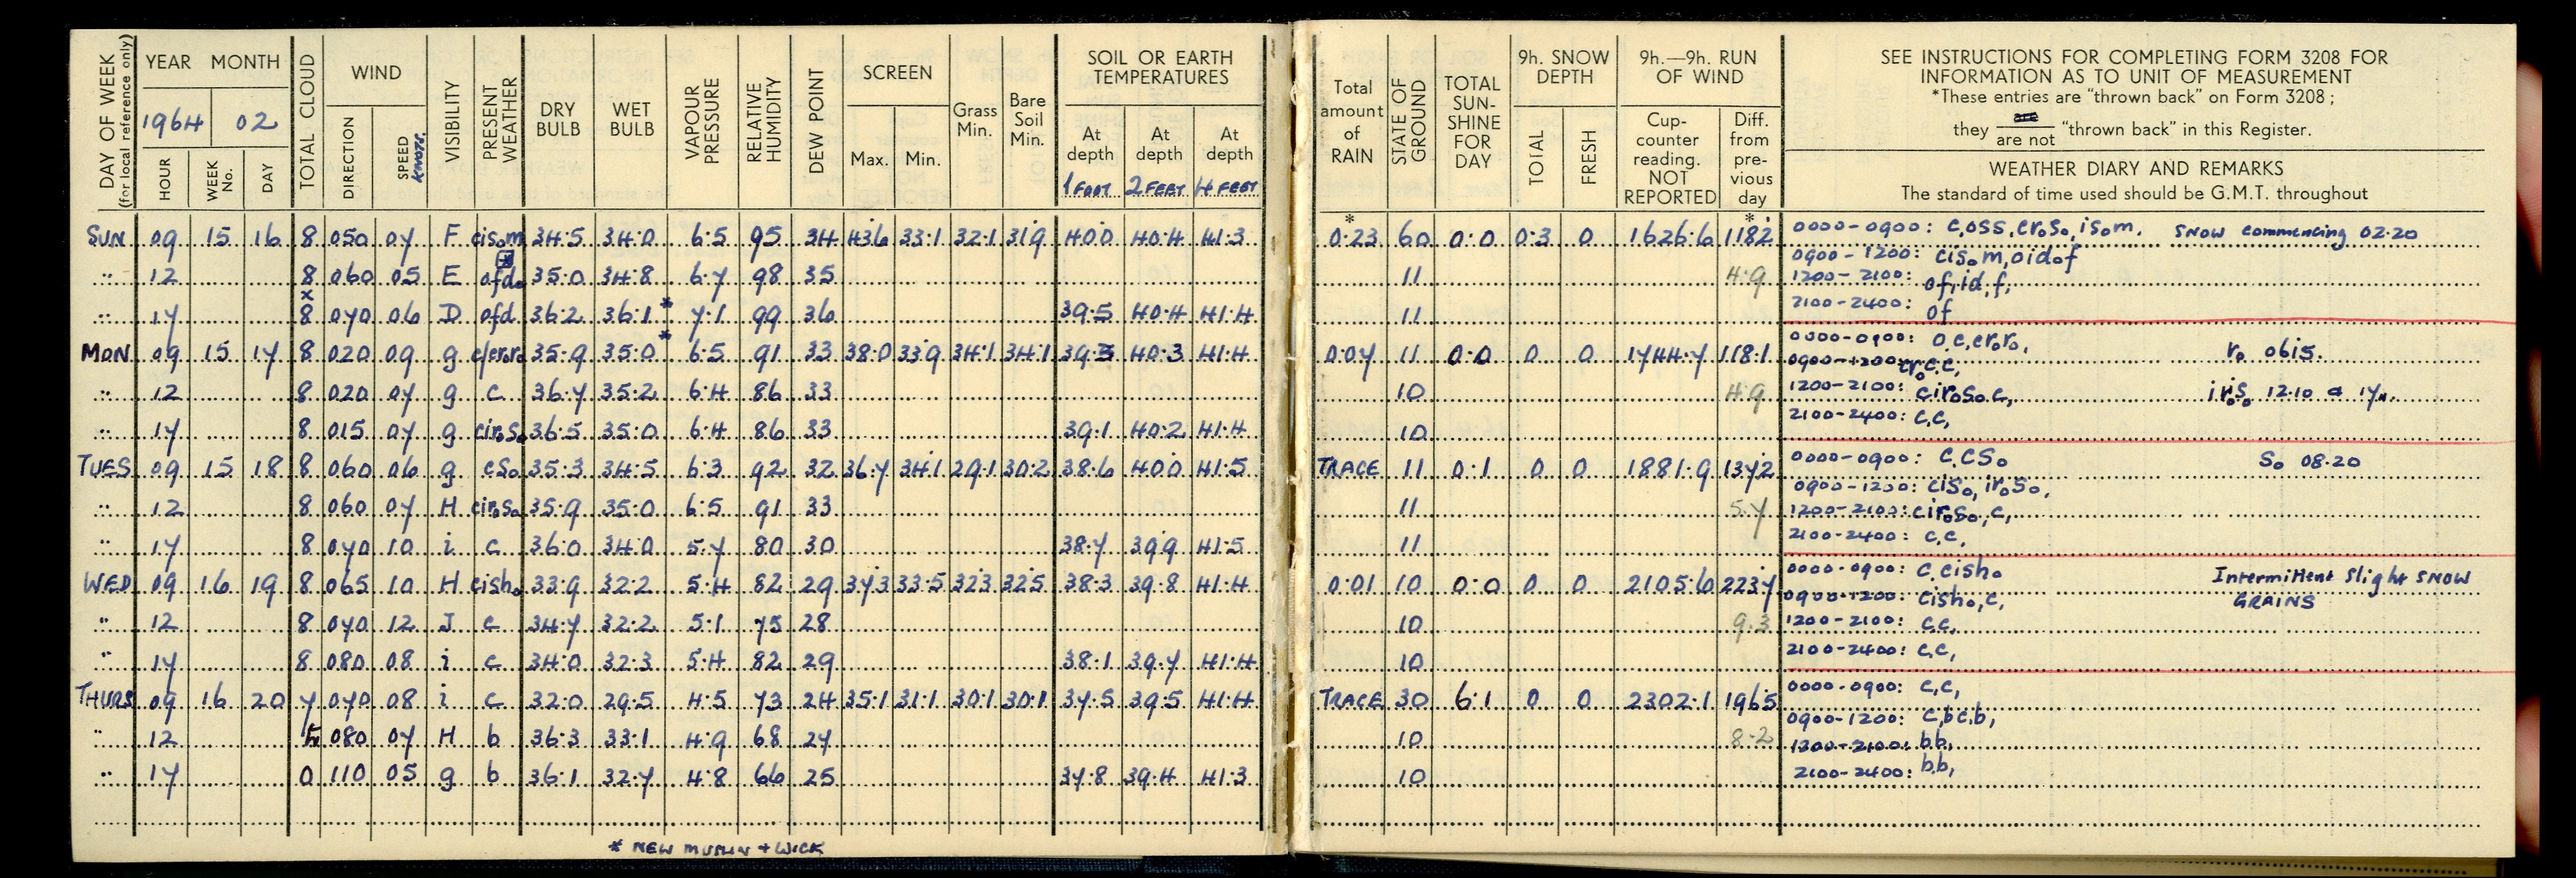 DAY OF WEEK (for local reference only)
YEAR MONTH
1964 02
HOUR WEEK No. DAY
TOTAL CLOUD
WIND
DIRECTION SPEED KNOTS.
VISIBILITY
PRESENT WEATHER
DRY BULB
WET BULB
VAPOUR PRESSURE
RELATIVE HUMIDITY
DEW POINT
SCREEN
Max. Min.
Grass Min.
Bare Soil Min.
SOIL OR EARTH TEMPERATURES
At depth 1 FOOT
At depth 2 FEET
At depth 4 FEET
Total amount of RAIN
STATE OF GROUND
TOTAL SUN-SHINE FOR DAY
9h. SNOW DEPTH
TOTAL FRESH
9h.—9h. RUN OF WIND
Cup-counter reading. NOT REPORTED
Diff. from pre-vious day
SEE INSTRUCTIONS FOR COMPLETING FORM 3208 FOR
INFORMATION AS TO UNIT OF MEASUREMENT
*These entries are "thrown back" on Form 3208;
they are not "thrown back" in this Register.
WEATHER DIARY AND REMARKS
The standard of time used should be G.M.T. throughout
SUN 09 15 16 8 050 07 F cisom 34.5 34.0 6.5 95 34 43.6 33.1 32.1 31.9 40.0 40.4 41.3 0.23 60 0.0 0.3 0 1626.6 118.2 0000-0900: c,oss,cr₀s₀,is₀m. SNOW commencing 02.20
" 12 8 060 05 E ofd₀ 35.0 34.8 6.7 98 35 11 4.9 0900-1200: cis₀m,oid₀f
" 17 8 070 06 D ofd 36.2 36.1* 7.1 99 36 39.5 40.4 41.4 11 1200-2100: of,id,f,
2100-2400: of
MON 09 15 17 8 020 09 g c/cr₀r₀ 35.9 35.0* 6.5 91 33 38.0 33.9 34.1 34.1 39.3 40.3 41.4 0.07 11 0.0 0 0 1744.7 118.1 0000-0900: o,c,cr₀r₀, r₀ 0615.
0900-1200 cr₀c,c,
" 12 8 020 07 g c 36.7 35.2 6.4 86 33 10 4.9 1200-2100: cir₀s₀c, ir₀s₀ 12.10 a 17..
" 17 8 015 07 g cir₀s₀ 36.5 35.0 6.4 86 33 39.1 40.2 41.4 10 2100-2400: c,c,
TUES 09 15 18 8 060 06 g cs₀ 35.3 34.5 6.3 92 32 36.7 34.1 29.1 30.2 38.6 40.0 41.5 TRACE 11 0.1 0 0 1881.9 137.2 0000-0900: c,cs₀ S₀ 08.20
0900-1200: cis₀, ir₀s₀,
" 12 8 060 07 H cir₀s₀ 35.9 35.0 6.5 91 33 11 5.7 1200-2100: cir₀s₀,c,
" 17 8 070 10 i c 36.0 34.0 5.7 80 30 38.7 39.9 41.5 11 2100-2400: c,c,
WED 09 16 19 8 065 10 H cish₀ 33.9 32.2 5.4 82 29 37.3 33.5 32.3 32.5 38.3 39.8 41.4 0.01 10 0.0 0 0 2105.6 223.7 0000-0900: c,cish₀ Intermittent slight SNOW GRAINS
0900-1200: cish₀,c,
" 12 8 070 12 J c 34.7 32.2 5.1 75 28 10 9.3 1200-2100: c,c,
" 17 8 080 08 i c 34.0 32.3 5.4 82 29 38.1 39.7 41.4 10 2100-2400: c,c,
THURS 09 16 20 7 070 08 i c 32.0 29.5 4.5 73 24 35.1 31.1 30.1 30.1 37.5 39.5 41.4 TRACE 30 6.1 0 0 2302.1 196.5 0000-0900: c,c,
0900-1200: c,bc,b,
" 12 080 07 H b 36.3 33.1 4.9 68 27 10 8.2 1200-2100: b,b,
" 17 0 110 05 g b 36.1 32.7 4.8 66 25 37.8 39.4 41.3 10 2100-2400: b,b,
* NEW MUSLIN + WICK